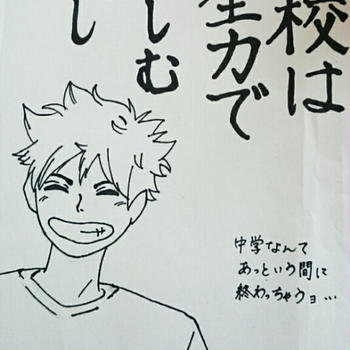 校は
全力で
しむ
し
中学なんて
あっという間に
終わっちゃうョ…